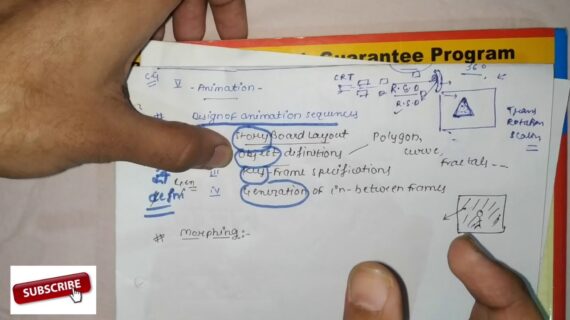 Guarantee Program
CG
V - Animation -
CRT
360
R.G.D
R.S.D
# Design of animation sequences
Story Board Layout
Polygon,
Object difinitions
curve,
fractals --
iii Key-Frame specifications
iv Generation of in-between frames
# Morphing:-
Trans
Rotation
Scalin
SUBSCRIBE